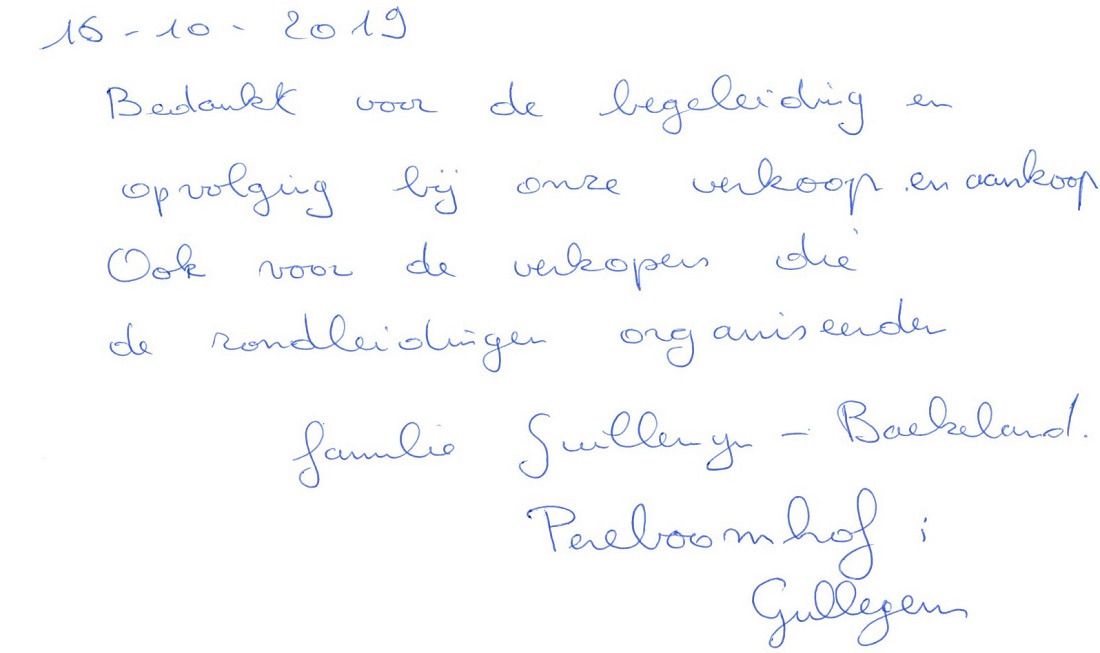 16-10-2019
Bedankt voor de begeleiding en
opvolging bij onze verkoop en aankoop
Ook voor de verkopers die
de rondleidingen organiseerden
familie Guillemyn - Baekeland.
Pereboomhof 1
Gullegem